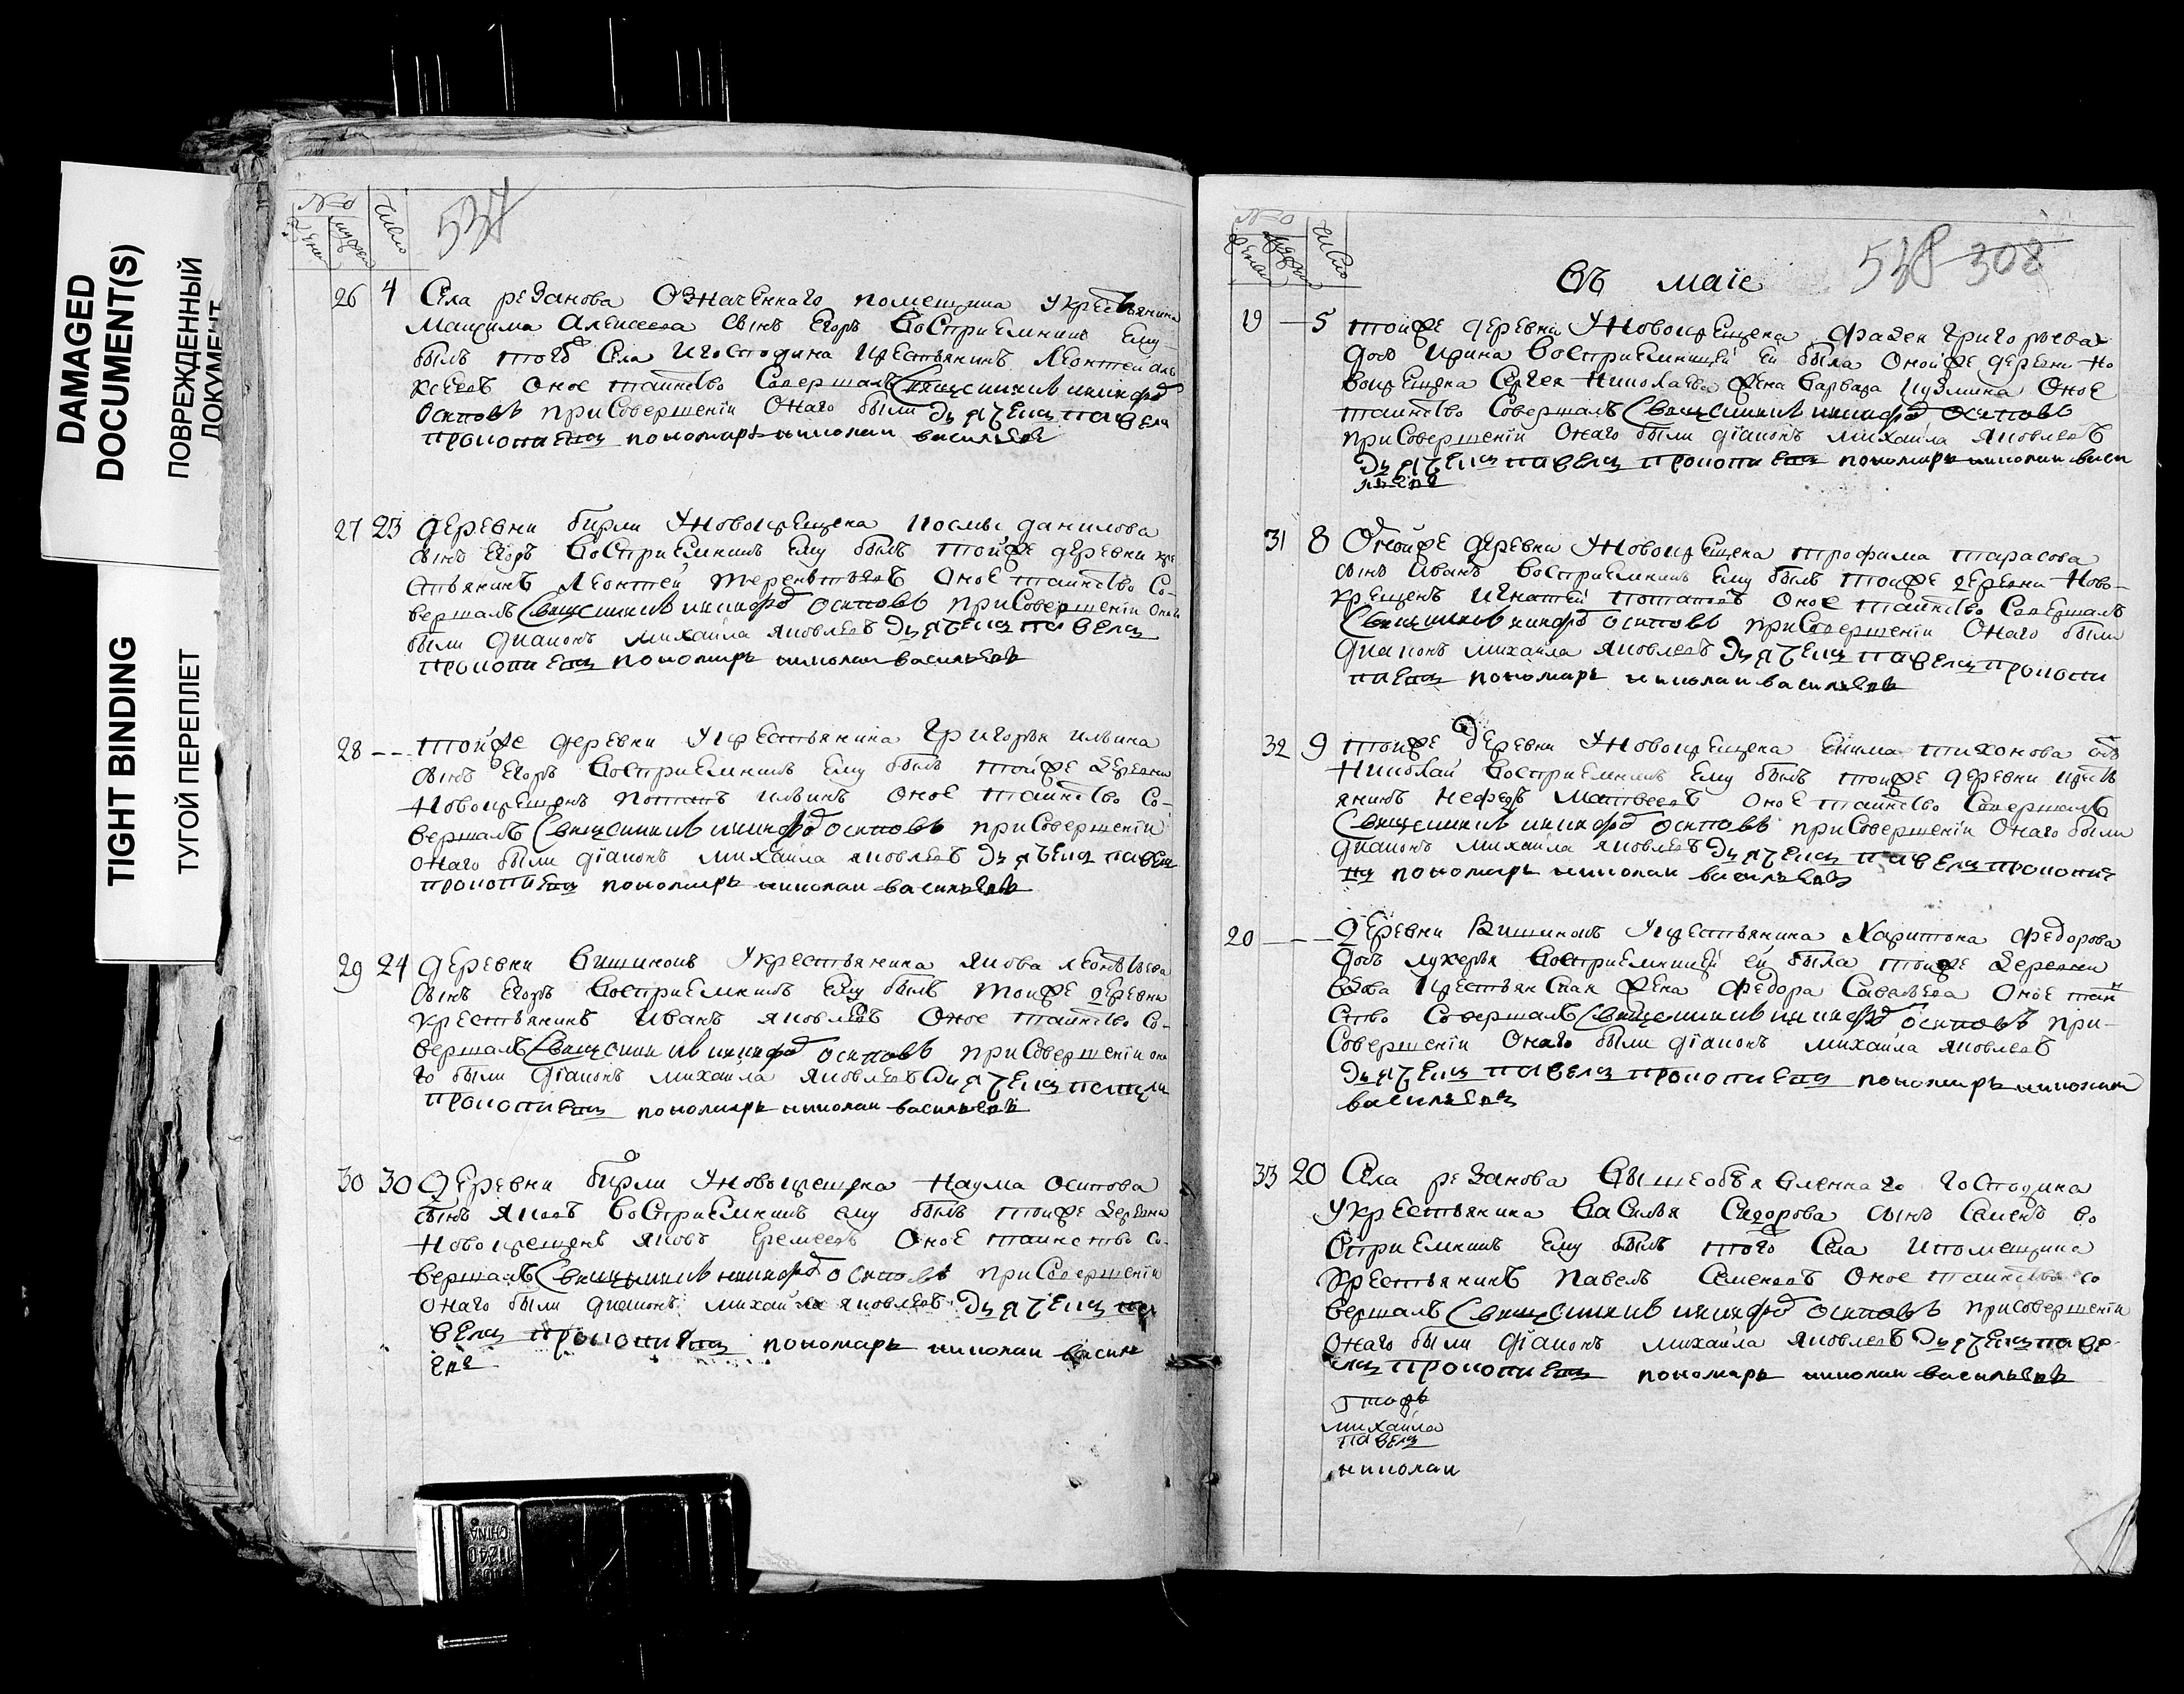 DAMAGED
DOCUMENT(S)
ПОВРЕЖДЕННЫЙ
ДОКУМЕНТ
TIGHT BINDING
ТУГОЙ ПЕРЕПЛЕТ
537
26 4 Села резанова Означеннаго помещика у крестьянина
Маѯима Алексеева сынъ Егоръ Восприемникъ Ему
былъ того Села и господина крестьянинъ Леонтей але
ксеевъ Оное таинство Совершалъ Священникъ никифоръ
осиповъ при Совершении Онаго были Дьячекъ павелъ
прокопиевъ пономарь николаи василиевъ
27 23 деревни бирли у Новокрещена Космы данилова
сынъ Егоръ Восприемникъ Ему былъ тойже деревни кре
стьянинъ Леонтей терентьевъ Оное таинство Со-
вершалъ Священникъ никифоръ осиповъ при Совершении онаго
были диаконъ михаила яковлевъ Дьячекъ павелъ
прокопиевъ пономарь николаи василиевъ
28 -- тойже деревни у крестьянина Григорья ильина
сынъ Егоръ Восприемникъ Ему былъ тойже деревни
Новокрещенъ потапъ ильинъ Оное таинство Со-
вершалъ Священникъ никифоръ осиповъ при Совершении
онаго были диаконъ михаила яковлевъ Дьячекъ павелъ
прокопиевъ пономарь николаи василиевъ
29 24 деревни Вишинокъ у крестьянина якова леонтьева
сынъ Егоръ Восприемникъ Ему былъ тойже деревни
крестьянинъ Иванъ яковлевъ Оное таинство Со-
вершалъ Священникъ никифоръ осиповъ при Совершении она
го были диаконъ михаила яковлевъ Дьячекъ павелъ
прокопиевъ пономарь николаи василиевъ
30 30 Деревни бирли у Новокрещена Наума осипова
сынъ яковъ Восприемникъ ему былъ тойже деревни
Новокрещенъ яковъ Еремеевъ Оное таинство Со-
вершалъ Священникъ никифоръ осиповъ при Совершении
онаго были диаконъ михаила яковлевъ Дьячекъ па
велъ прокопиевъ пономарь николаи васили
евъ
538 308
Въ маie
19 — 5 тойже деревни у Новокрещена фадея григорьева
дочь Ирина Восприемницей Ей была Онойже деревни Но
вокрещена Сергея Николаева жена Варвара кузмина Оное
таинство Совершалъ Священникъ никифоръ осиповъ
при Совершении Онаго были диаконъ михаила яковлевъ
Дьячекъ павелъ прокопиевъ пономарь николаи васи
лиевъ
31 8 Онойже деревни у Новокрещена трофима тарасова
сынъ Иванъ Восприемникъ Ему былъ тойже деревни Ново-
крещенъ Игнатей потаповъ Оное таинство Совершалъ
Священникъ никифоръ осиповъ при Совершении Онаго были
диаконъ михаила яковлевъ Дьячекъ павелъ прокопи
иевъ пономарь николаи василиевъ
32 9 тойже деревни у Новокрещена Екима тихонова сынъ
Николай Восприемникъ Ему былъ тойже деревни кресть
янинъ Нефедъ Матвеевъ Оное таинство Совершалъ
Священникъ никифоръ осиповъ при Совершении Онаго были
диаконъ михаила яковлевъ Дьячекъ павелъ прокопие
въ пономарь николаи василиевъ
20 — -- Деревни Вишинокъ у крестьянина Харитона Федорова
дочь лукерья Восприемницей ей была тойже деревни
вдова крестьянская жена Федора Савельева Оное таин
ство Совершалъ Священникъ никифоръ осиповъ при-
Совершении Онаго были диаконъ михаила яковлевъ
Дьячекъ павелъ прокопиевъ пономарь николаи
василиевъ
33 20 Села резанова Вышеобъявленнаго господина
у крестьянина Василья Сидорова сынъ Семенъ во
сприемникъ Ему былъ того Села и помещика
крестьянинъ павелъ Семеновъ Оное таинство со
вершалъ Священникъ никифоръ осиповъ при совершении
онаго были диаконъ михаила яковлевъ Дьячекъ паве
лъ прокопиевъ пономарь николаи василиевъ
михаила
павелъ
николаи